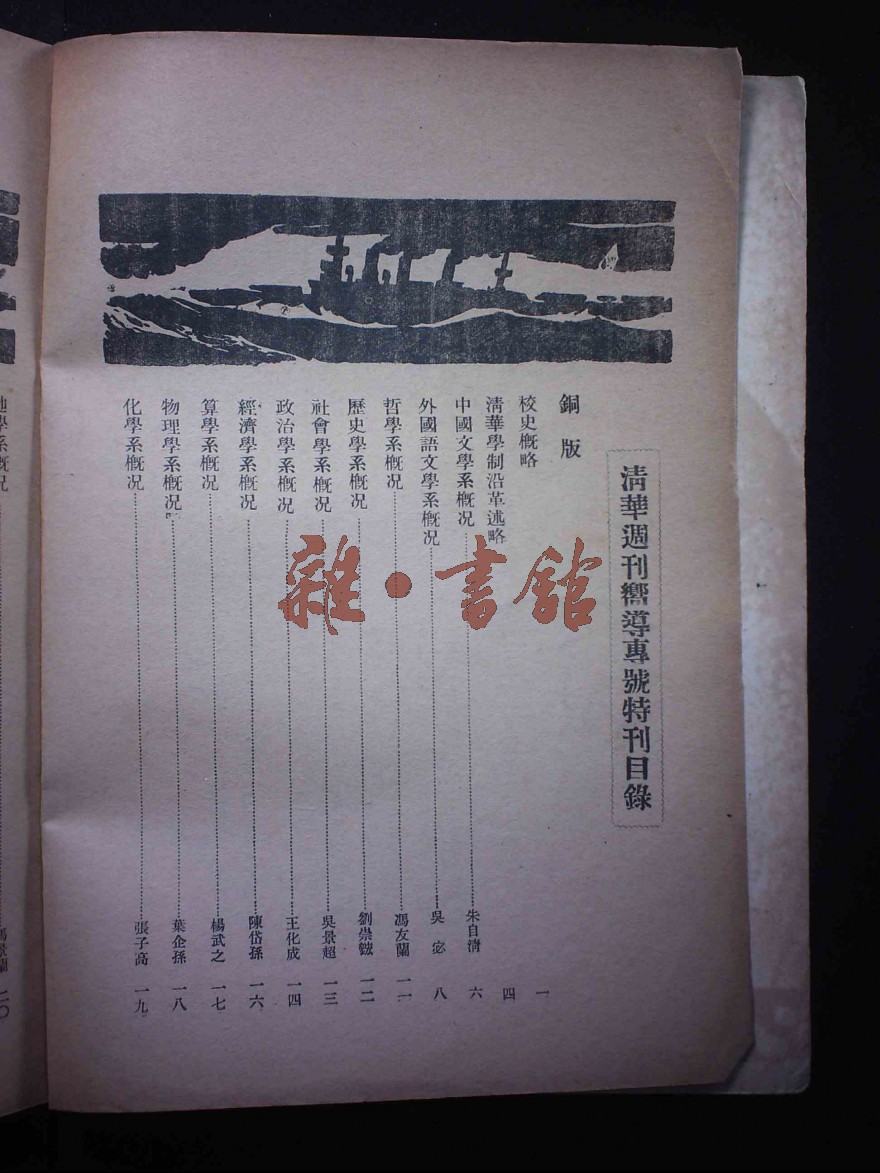 清華週刊嚮導專號特刊目錄
銅版
校史概略 一
清華學制沿革述略 四
中國文學系概况 朱自清 六
外國語文學系概况 吳宓 八
哲學系概况 馮友蘭 一一
歷史學系概况 劉崇鋐 一二
社會學系概况 吳景超 一三
政治學系概况 王化成 一四
經濟學系概况 陳岱孫 一六
算學系概况 楊武之 一七
物理學系概况 葉企孫 一八
化學系概况 張子高 一九
地學系概况 馮景蘭 二〇
雜·書館